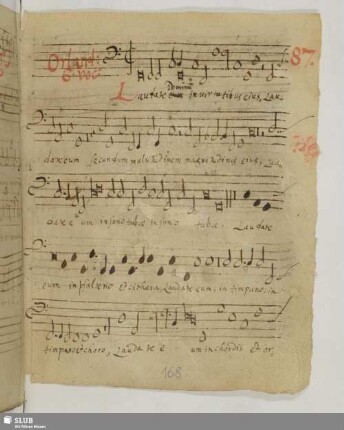 Orland:
8. voc
87.
Dominū
Laudate eum in virtutibus eius, Lau-
date eum secundum multitudinem magnitudinis eius, Lau
date eum in sono tubæ in sono tubæ. Laudate
eum in psalterio et cithara, Laudate eum, in timpano, in
timpano et choro, Lauda te e um in chordis et or,
168
SLUB
Wir führen Wissen.